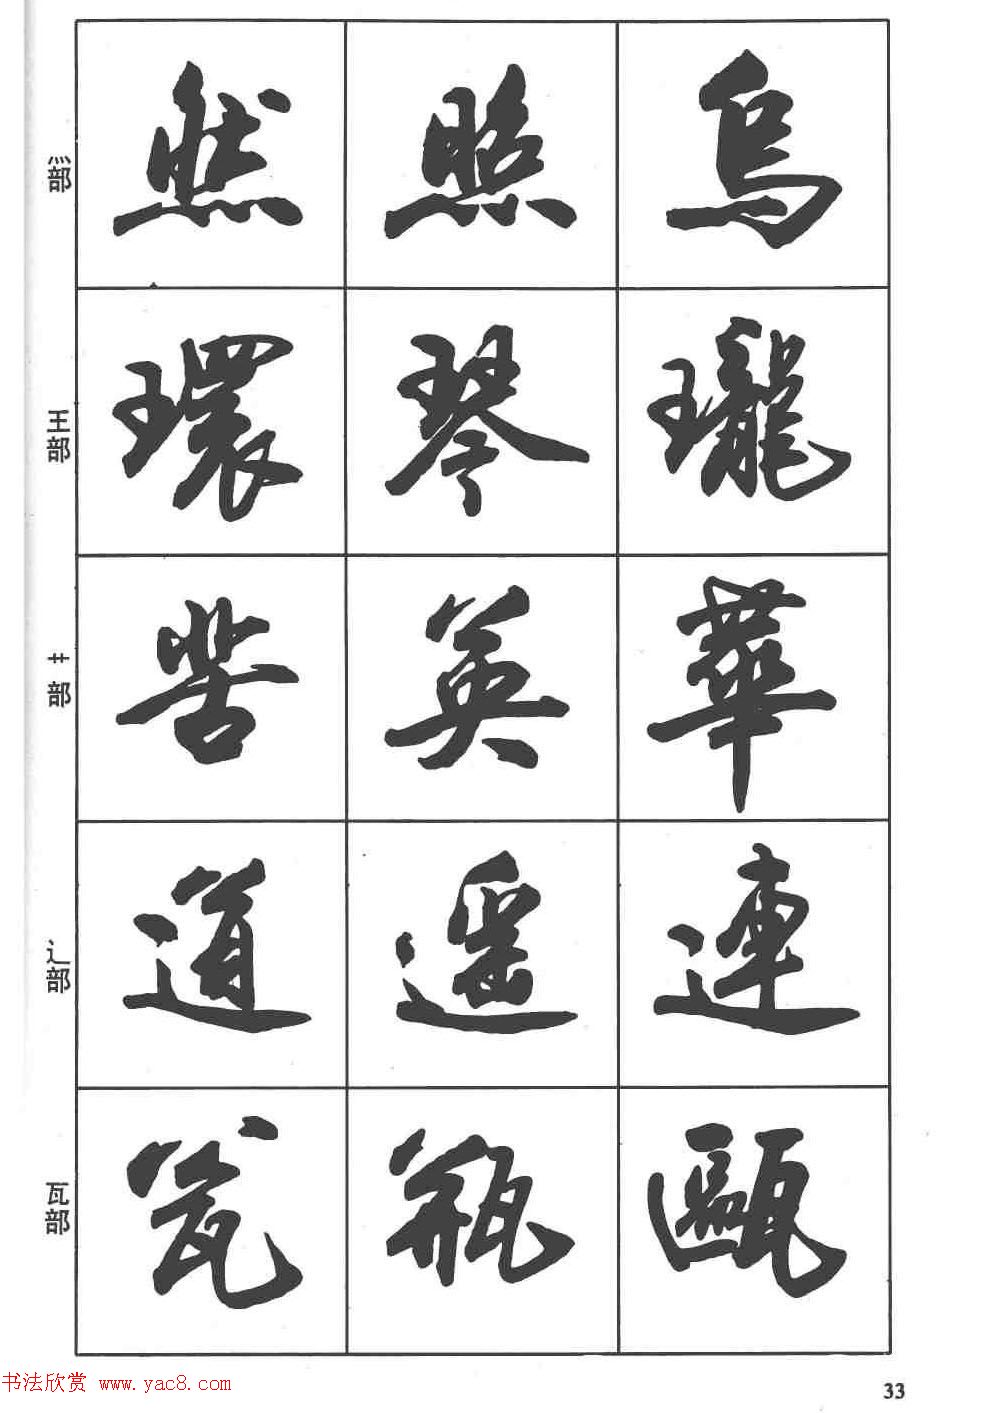 灬部 然 照 烏
王部 環 琴 瓏
艹部 苦 英 華
辶部 道 遥 連
瓦部 瓮 瓶 甌
书法欣赏 www.yac8.com
33